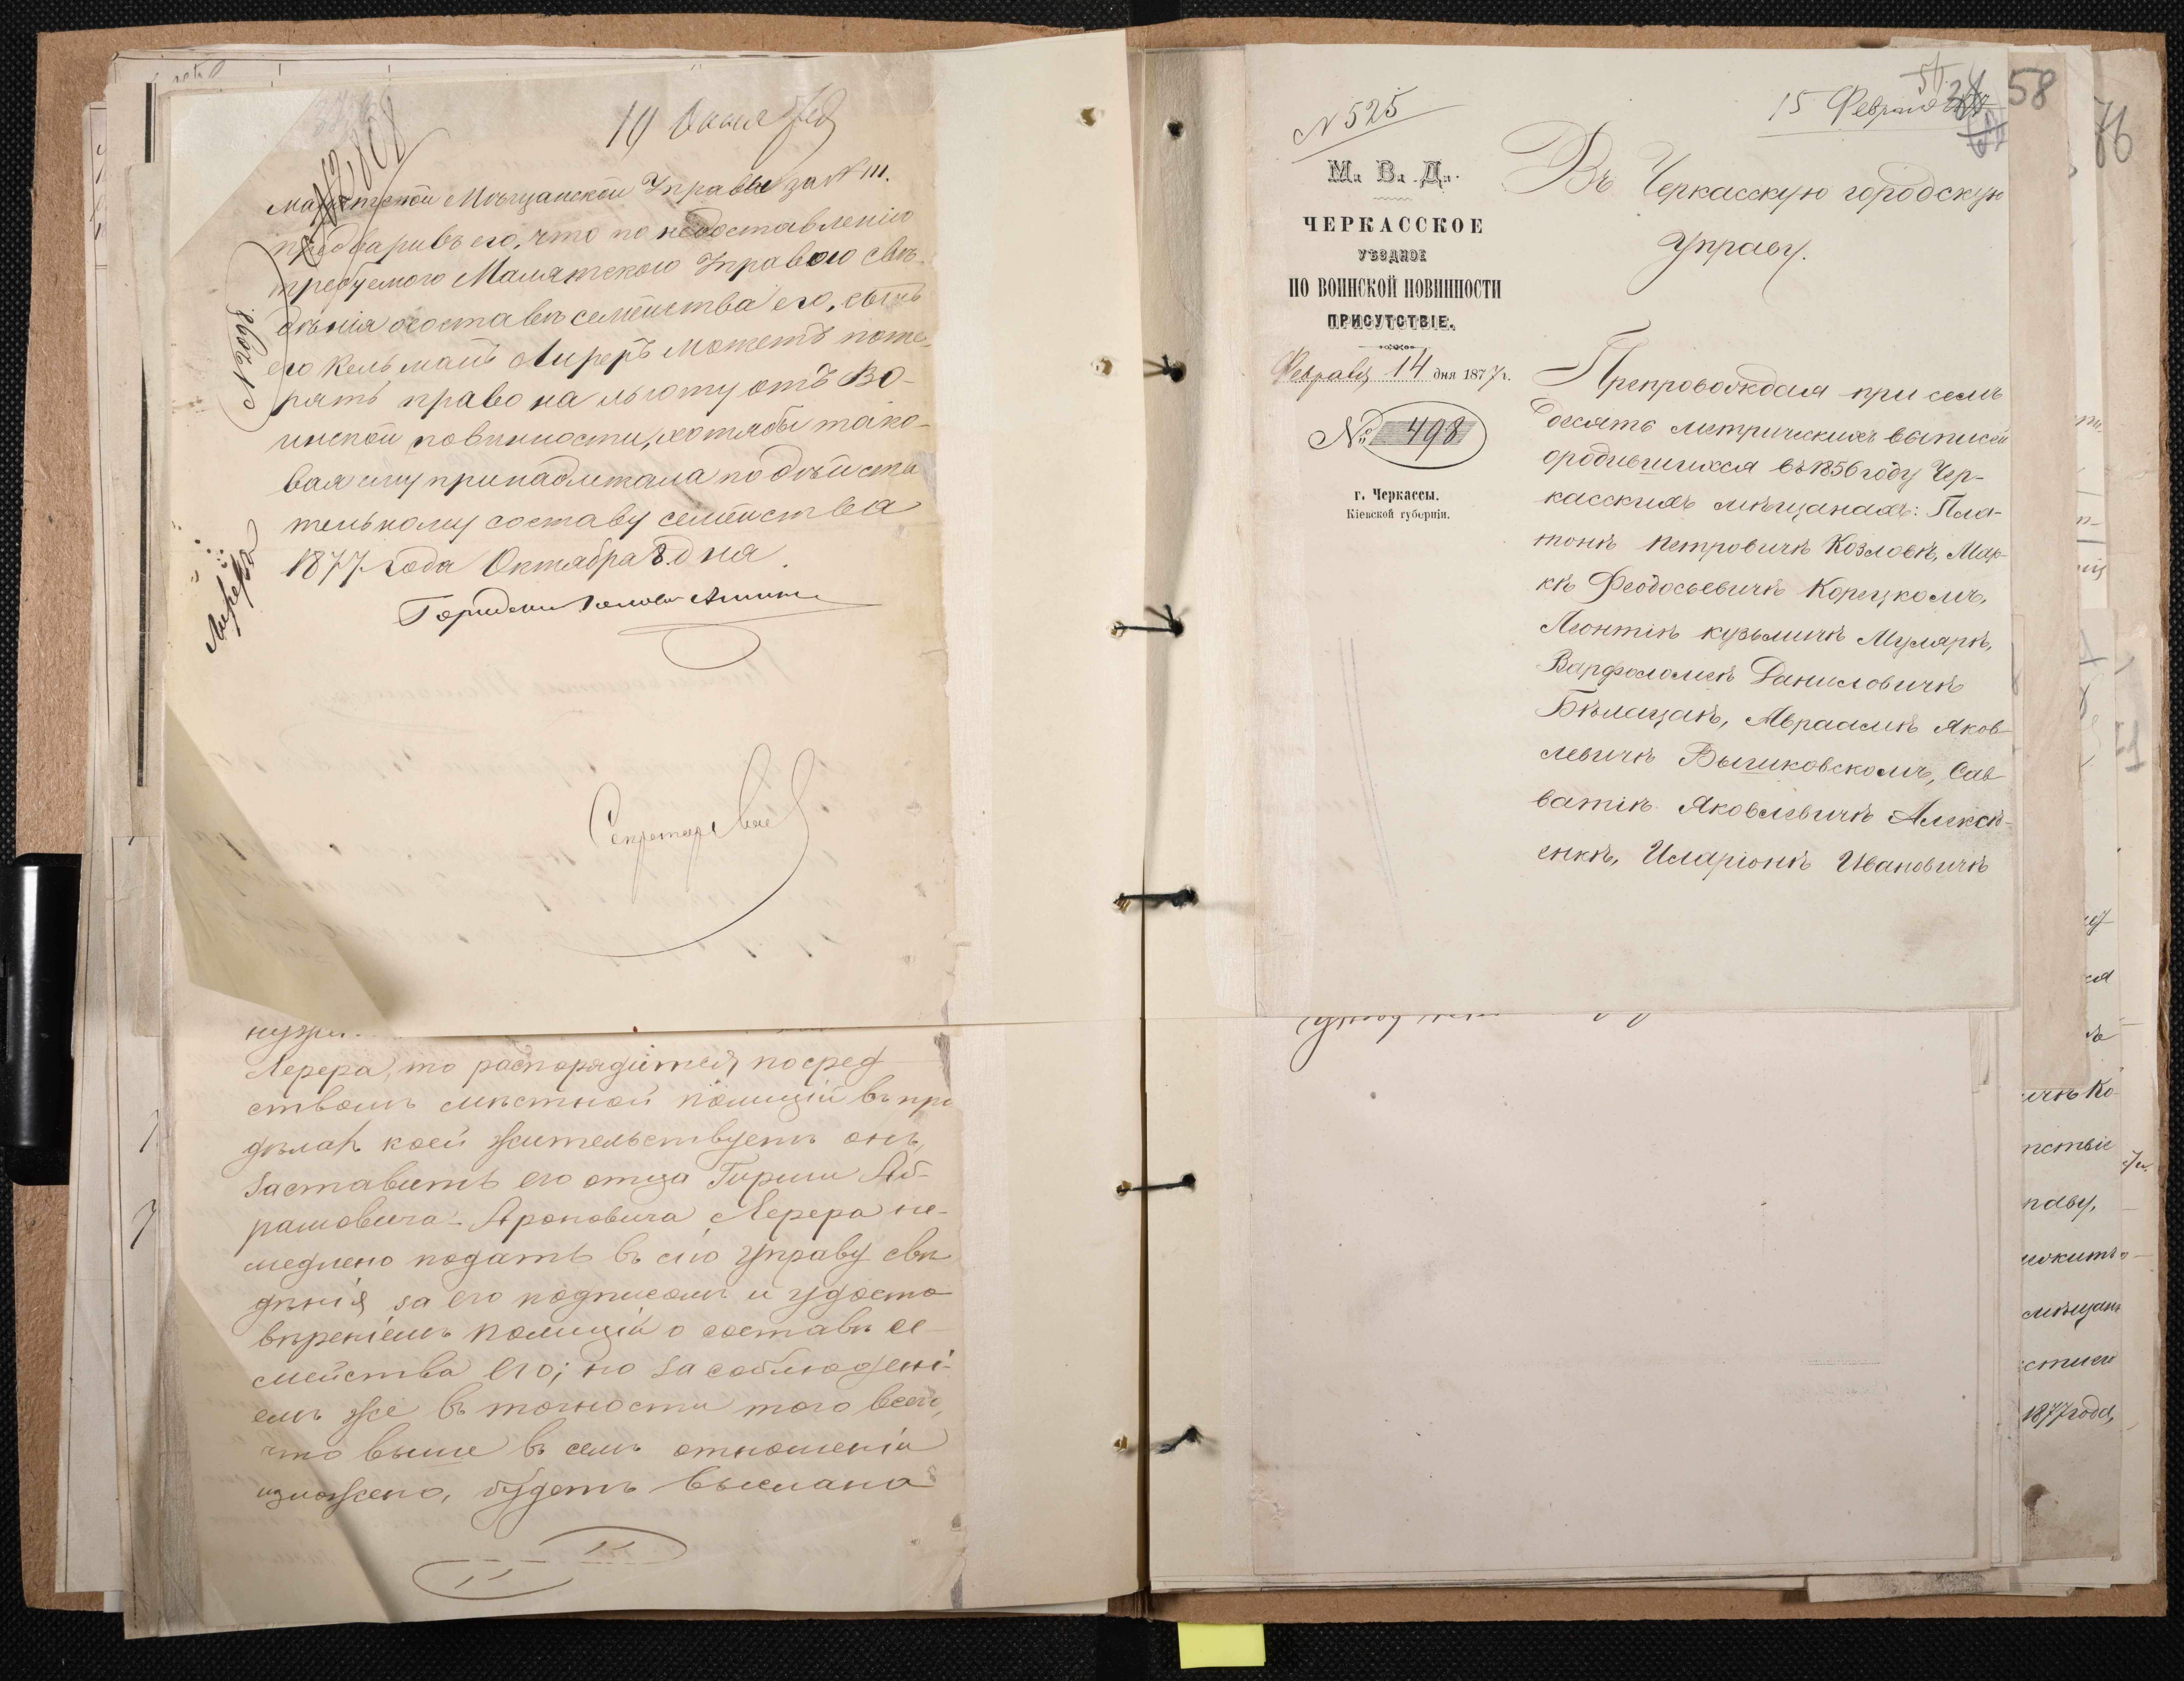 10 Октября
Мѣщанской Управы за № 111.
предваривъ его, что по недоставленію
требуемого Малятскою Управою свѣ-
дѣнія о составѣ семейства его, сынъ
его Кельманъ Лиреръ можетъ поте-
рять право на льготу отъ во-
инской повинности, хотябы тако-
вая ему принадлежала по дѣйстви
тельному составу семейства
1877 года Октября 8 дня.
Городской Голова
Секретарь
Лирера
Лерера, то распорядится посред
ствомъ мѣстной полиціи въ пре
дѣлах коей жительствуетъ онъ,
заставить его отца Гирши Аб-
рамовича-Ароновича Лерера не-
медлено подать въ сію управу свѣ
дѣнія за его подписомъ и удосто
вѣреніемъ полиціи о составѣ се-
мейства его; но за соблюдені-
емъ же въ точности того всего,
что выше въ семъ отношеніи
изложено, будетъ выслана
№ 525
15 Февраля
58
76
М. В. Д.
ЧЕРКАССКОЕ
УѢЗДНОЕ
ПО ВОИНСКОЙ ПОВИННОСТИ
ПРИСУТСТВІЕ.
Февраля 14 дня 1877 г.
№ 498
г. Черкассы.
Кіевской губерніи.
Въ Черкасскую городскую
Управу.
Препровождая при семъ
десять метрическихъ выписей
о родившихся въ 1856 году Чер-
касскихъ мѣщанахъ: Пла-
тонѣ Петровичѣ Козловѣ, Мар-
кѣ Феодосьевичѣ Корецкомъ,
Леонтіѣ Кузьмичѣ Мулярѣ,
Варфоломеѣ Даниловичѣ
Бѣлацакѣ, Авраамѣ Яков-
левичѣ Вышковскомъ, Сав-
ватіѣ Яковлевичѣ Алексѣ-
енкѣ, Иларіонѣ Ивановичѣ
ичѣ Ко-
мѣщанъ
1877 года,